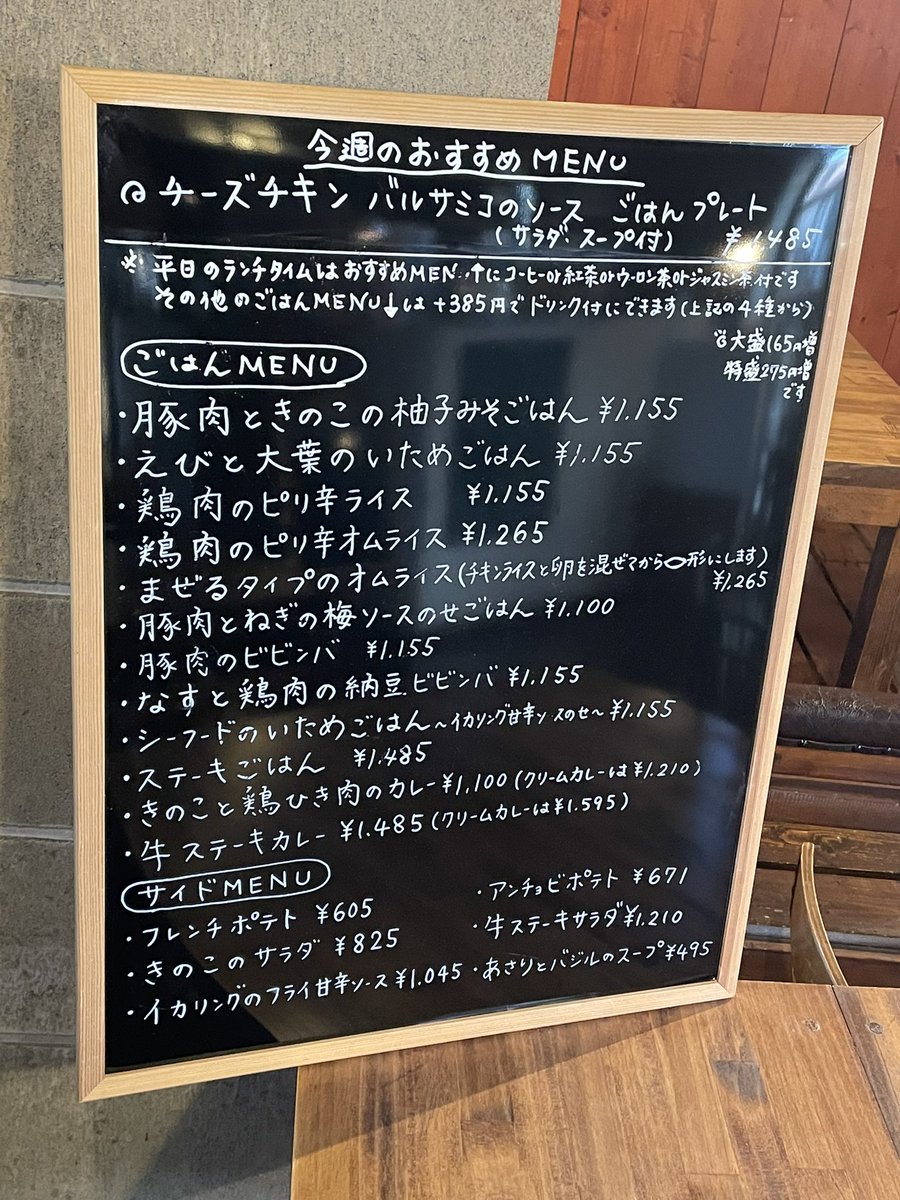 今週のおすすめMENU
チーズチキン バルサミコのソース ごはんプレート
(サラダ・スープ付) ¥1.485
※ 平日のランチタイムはおすすめMEN ↑にコーヒーor紅茶orウーロン茶orジャスミン茶付です
その他のごはんMENU↓は +385円でドリンク付にできます(上記の4種から)
大盛165円増
特盛275円増
です
ごはんMENU
・豚肉ときのこの柚子みそごはん ¥1.155
・えびと大葉のいためごはん ¥1.155
・鶏肉のピリ辛ライス ¥1.155
・鶏肉のピリ辛オムライス ¥1.265
・まぜるタイプのオムライス(チキンライスと卵を混ぜてから⬭形にします)
¥1.265
・豚肉とねぎの梅ソースのせごはん ¥1.100
・豚肉のビビンバ ¥1.155
・なすと鶏肉の納豆ビビンバ ¥1.155
・シーフードのいためごはん～イカリング甘辛ソ スのせ～ ¥1.155
・ステーキごはん ¥1.485
・きのこと鶏ひき肉のカレー ¥1,100 (クリームカレーは¥1.210)
・牛ステーキカレー ¥1.485 (クリームカレーは¥1.595)
サイドMENU
・フレンチポテト ¥605 ・アンチョビポテト ¥671
・きのこのサラダ ¥825 ・牛ステーキサラダ ¥1.210
・イカリングのフライ甘辛ソース ¥1.045 ・あさりとバジルのスープ ¥495